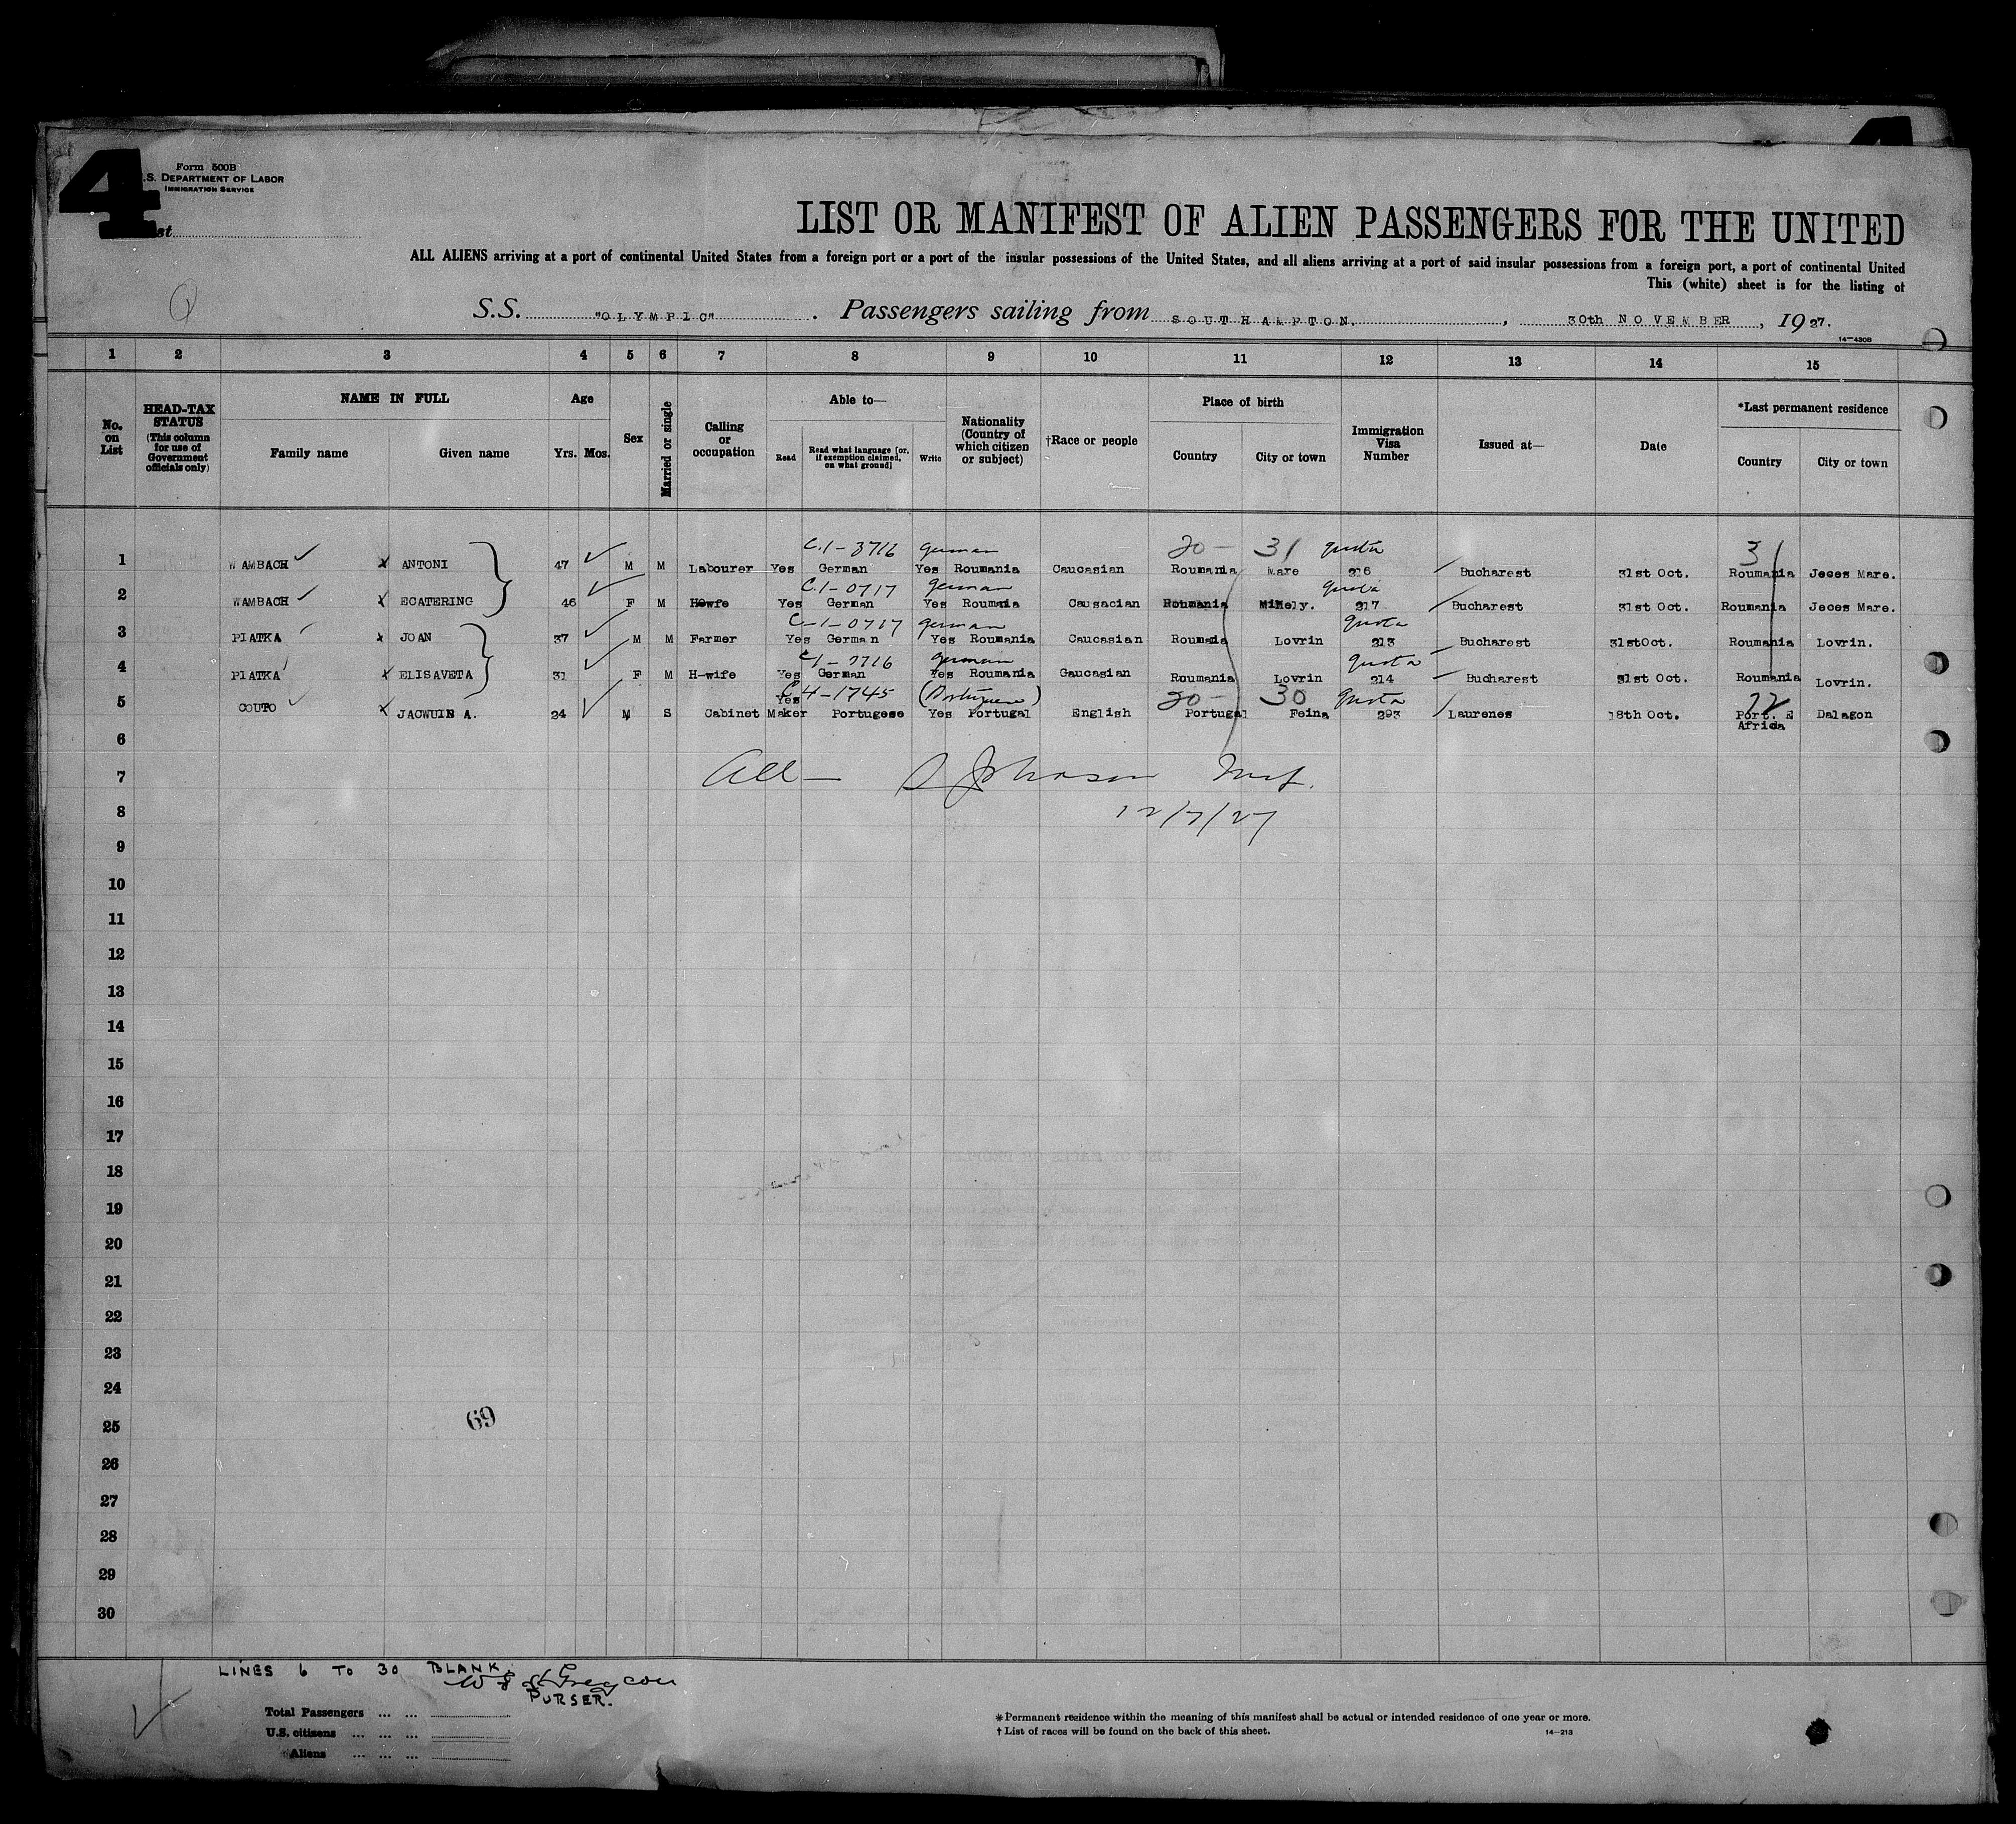 4
Form 500B
.S. DEPARTMENT OF LABOR
IMMIGRATION SERVICE
st
LIST OR MANIFEST OF ALIEN PASSENGERS FOR THE UNITED
ALL ALIENS arriving at a port of continental United States from a foreign port or a port of the insular possessions of the United States, and all aliens arriving at a port of said insular possessions from a foreign port, a port of continental United
This (white) sheet is for the listing of
S.S. "OLYMPIC". Passengers sailing from SOUTHAMPTON., 30th NOVEMBER, 1927.
14-430B
1 2 3 4 5 6 7 8 9 10 11 12 13 14 15
No. on List
HEAD-TAX STATUS (This column for use of Government officials only)
NAME IN FULL Family name Given name
Age Yrs. Mos.
Sex
Married or single
Calling or occupation
Able to— Read Read what language [or, if exemption claimed, on what ground] Write
Nationality (Country of which citizen or subject)
†Race or people
Place of birth Country City or town
Immigration Visa Number
Issued at—
Date
*Last permanent residence Country City or town
C.1-3716 German 20- 31 quota 31
1 WAMBACH ANTONI 47 M M Labourer Yes German Yes Roumania Caucasian Roumania Mare 216 Bucharest 31st Oct. Roumania Jeces Mare.
C.1-0717 German quota
2 WAMBACH ECATERING 46 F M Yes German Yes Roumania Causacian Roumania 217 Bucharest 31st Oct. Roumania Jeces Mare.
C-1-0717 German quota
3 PIATKA JOAN 37 M M Farmer Yes German Yes Roumania Caucasian Roumania Lovrin 213 Bucharest 31stOct. Roumania Lovrin.
German quota
4 PIATKA ELISAVETA 31 F M H-wife Yes German Yes Roumania Gaucasian Roumania Lovrin 214 Bucharest 31st Oct. Roumania Lovrin.
C4-1745 (Portuguese) 20- 30 quota
5 COUTO A. 24 M S Cabinet Maker Yes Portugese Yes Portugal English Portugal Feina 293 Laurenes 18th Oct. Port. E Africa Dalagon
6
7 All— Johnson Insp.
8 12/7/27
9
10
11
12
13
14
15
16
17
18
19
20
21
22
23
24
25
69
26
27
28
29
30
LINES 6 TO 30 BLANK.
PURSER.
Total Passengers ... ...
U.S. citizens ... ... ...
Aliens ... ... ...
*Permanent residence within the meaning of this manifest shall be actual or intended residence of one year or more.
†List of races will be found on the back of this sheet.
14-213